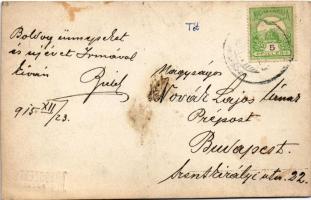 Tél
Boldog ünnepeket
és ujévet Irmával
kíván
915 XII/23.
5
Nagyságos
Novák Lajos
Prépost
Budapest.
Szentkirályi utca. 22.